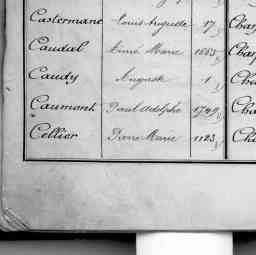 Castermane Louis Auguste 17
Caudal Aimé Marie 1663 Cha
Caudy Auguste 1 Cha
Caumont Paul Adolphe 1749 Cha
Cellier Pierre Marie 1123 Cha